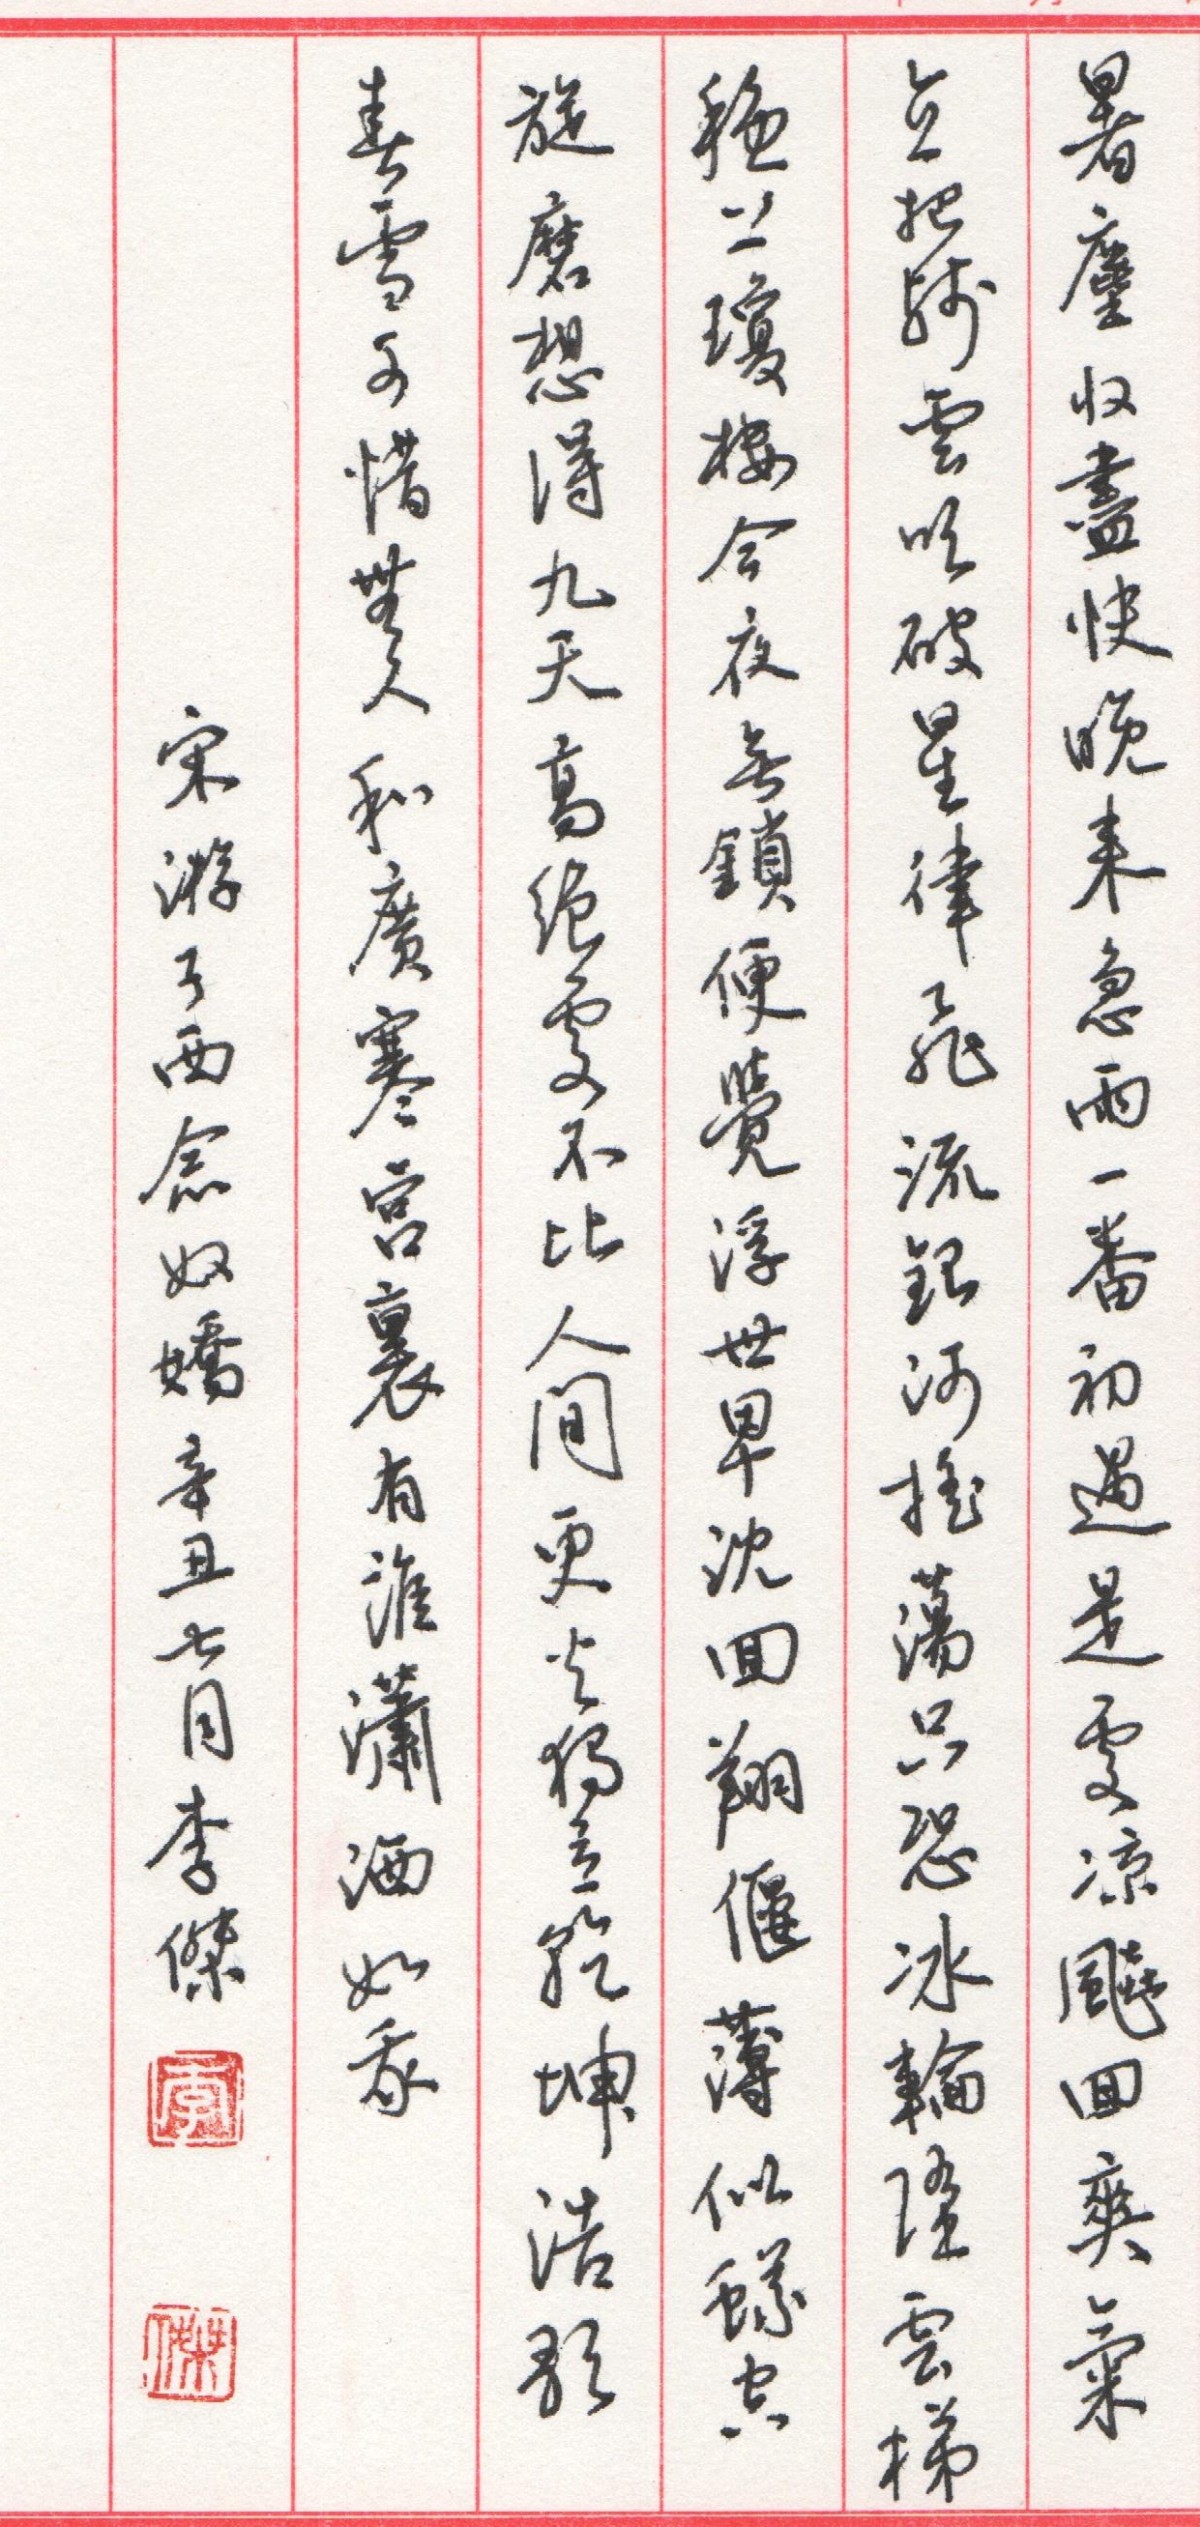 暑塵收盡快晚來急雨一番初過是處涼飆回爽氣
直把殘雲吹破星律飛流銀河搖蕩只恐冰輪墮雲梯
穩上瓊樓今夜無鎖便覺浮世卑沈回翔偃薄似蟻空
旋磨想得九天高絕處不比人間更火獨立乾坤浩歌
春雪可惜無人和廣寒宮裏有誰瀟洒如我
宋游子西念奴嬌辛丑七月李傑
李
傑